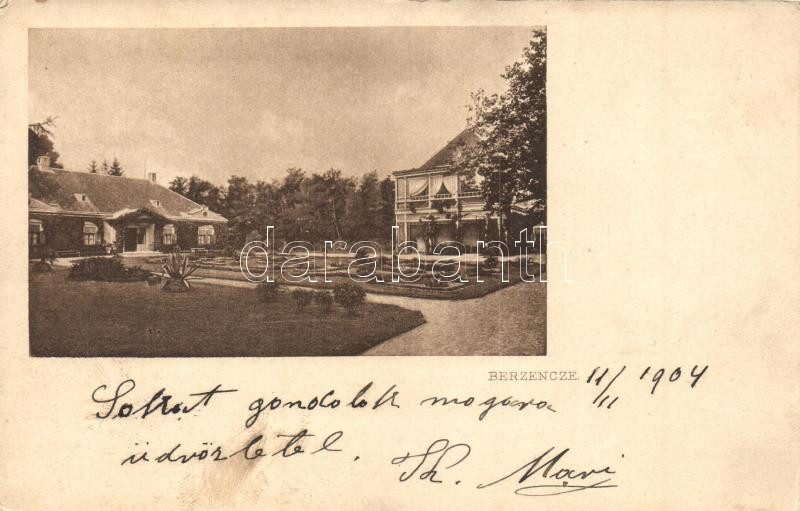 darabanth
BERZENCZE. 11/11 1904
Sokat gondolok magara
üdvözletel.
Th. Mari